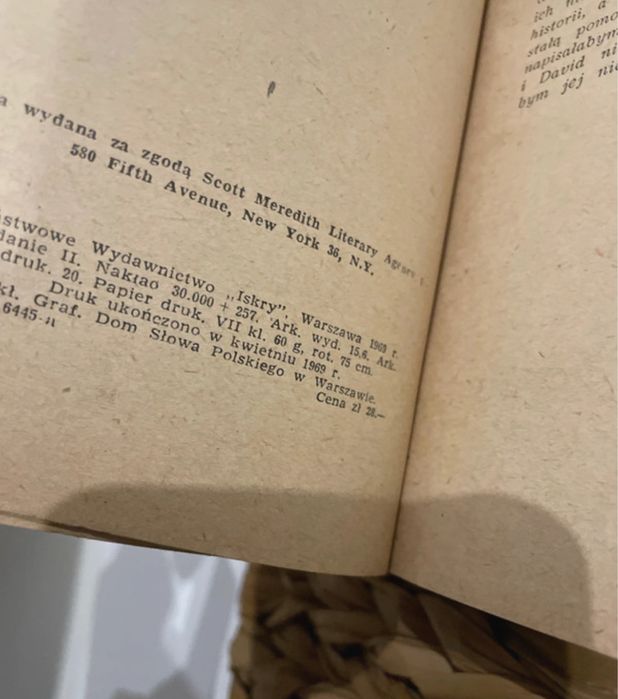 a wydana za zgodą Scott Meredith Literary
580 Fifth Avenue, New York 36, N.Y.
ństwowe Wydawnictwo „Iskry". Warszawa 1969 r.
danie II. Nakład 30.000 + 257. Ark. wyd. 15,6. Ark.
druk. 20. Papier druk. VII kl. 60 g, rot. 75 cm.
Druk ukończono w kwietniu 1969 r.
kł. Graf. Dom Słowa Polskiego w Warszawie.
6445
Cena zł 28.—
ich
historii, a
stałą pomo
napisałabym
i David ni
bym jej nie